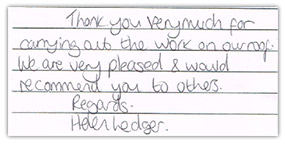 Thank you very much for
carrying out the work on our roof.
We are very pleased & would
recommend you to others.
Regards.
Helen Ledger.